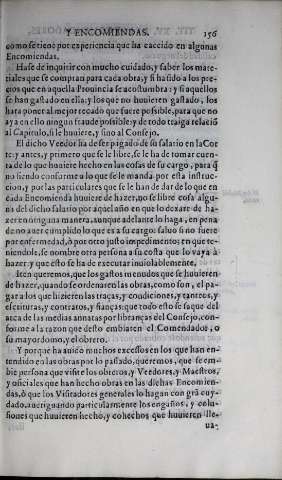 Y ENCOMIENDAS. 156
como se tiene por experiencia que ha caecido en algunas
Encomiendas.
Hase de inquirir con mucho cuidado, y saber los mate-
riales que se compran para cada obra, y si ha sido a los pre-
cios que en aquella Prouincia se acostumbra: y si aquellos
se han gastado en ella: y los que no huuieren gastado, los
hara poner al mejor recado que fuere possible, para que no
aya en ello ningun fraude possible: y de todo traiga relació
al Capitulo, si le huuiere, y sino al Consejo.
El dicho Veedor ha de ser pagado de su salario en la Cor
te: y antes, y primero que se le libre, se le ha de tomar cuen-
ta de lo que huuiere hecho en las cosas de su cargo, para q̃
no siendo conforme a lo que se le manda por esta instruc-
cion, y por las particulares que se le han de dar de lo que en
cada Encomienda huuiere de hazer, no se libre cosa algu-
na del dicho salario por aquel año en que lo dexare de ha-
zer en ninguna manera, aunque adelante lo haga, en pena
de no auer cumplido lo que es a su cargo: saluo si no fuere
por enfermedad, ò por otro justo impedimento: en que te-
niendole, se nombre otra persona a su costa que lo vaya à
hazer: y que esto se ha de executar inuiolablemente.
Iten queremos, que los gastos menudos que se huuieren
de hazer, quando se ordenaren las obras, como son, el pa-
gar a los que hizieren las traças, y condiciones, y tanteos, y
escrituras, y contratos, y fianças: que todo esto se saque del
arca de las medias annatas por libranças del Consejo, con-
forme a la razon que desto embiaren el Comendador, o
su mayordomo, y el obrero.
Y porque ha auido muchos excessos en los que han en-
tendido en las obras por lo passado, queremos, que se em-
bie persona que visite los obreros, y Veedores, y Maestros,
y oficiales que han hecho obras en las dichas Encomien-
das, ò que los Visitadores generales lo hagan con grã cuy-
dado, aueriguando particularmente los engaños, y colu-
siones que huuieren hecho, y cohechos que huuieren lle-
ua-